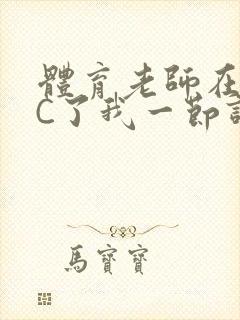 體育老師在
C了我一節
馬寶寶